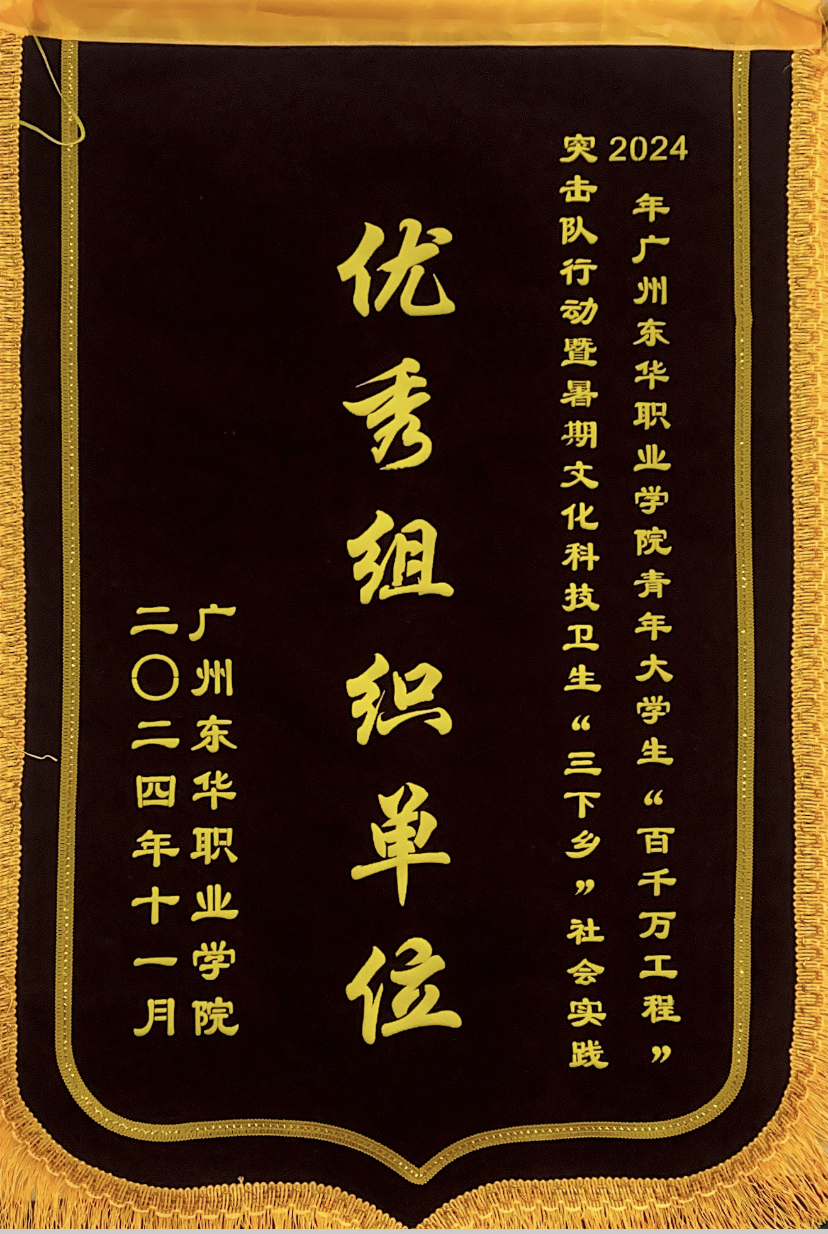 2024年广州东华职业学院青年大学生“百千万工程”
突击队行动暨暑期文化科技卫生“三下乡”社会实践
优秀组织单位
广州东华职业学院
二〇二四年十一月